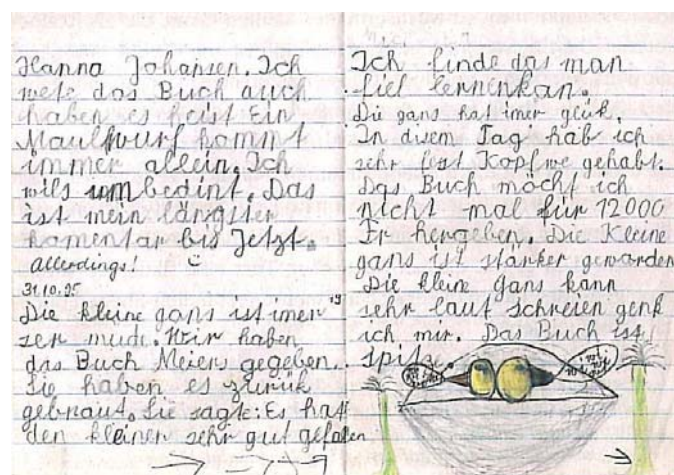 Hanna Johansen. Ich
wete das Buch auch
haben es heist Ein
Maulwurf kommt
immer allein. Ich
wils umbedint. Das
ist mein längster
komentar bis Jetzt.
allerdings!
31.10.95
Die kleine gans ist imer
ser müde. Wir haben
das Buch Meiers gegeben.
Sie haben es zurük
gebraut. Sie sagte: Es hatt
den kleiner sehr gut gefalen
Ich finde das man
fiel lernenkan.
Die gans hat imer glük.
In disem Tag hab ich
sehr fest Kopfwe gehabt.
Das Buch möcht ich
nicht mal für 12000
Fr hergeben. Die Kleine
gans ist stärker geworden
Die kleine Gans kann
sehr laut schreien genk
ich mir. Das Buch ist
spitze.